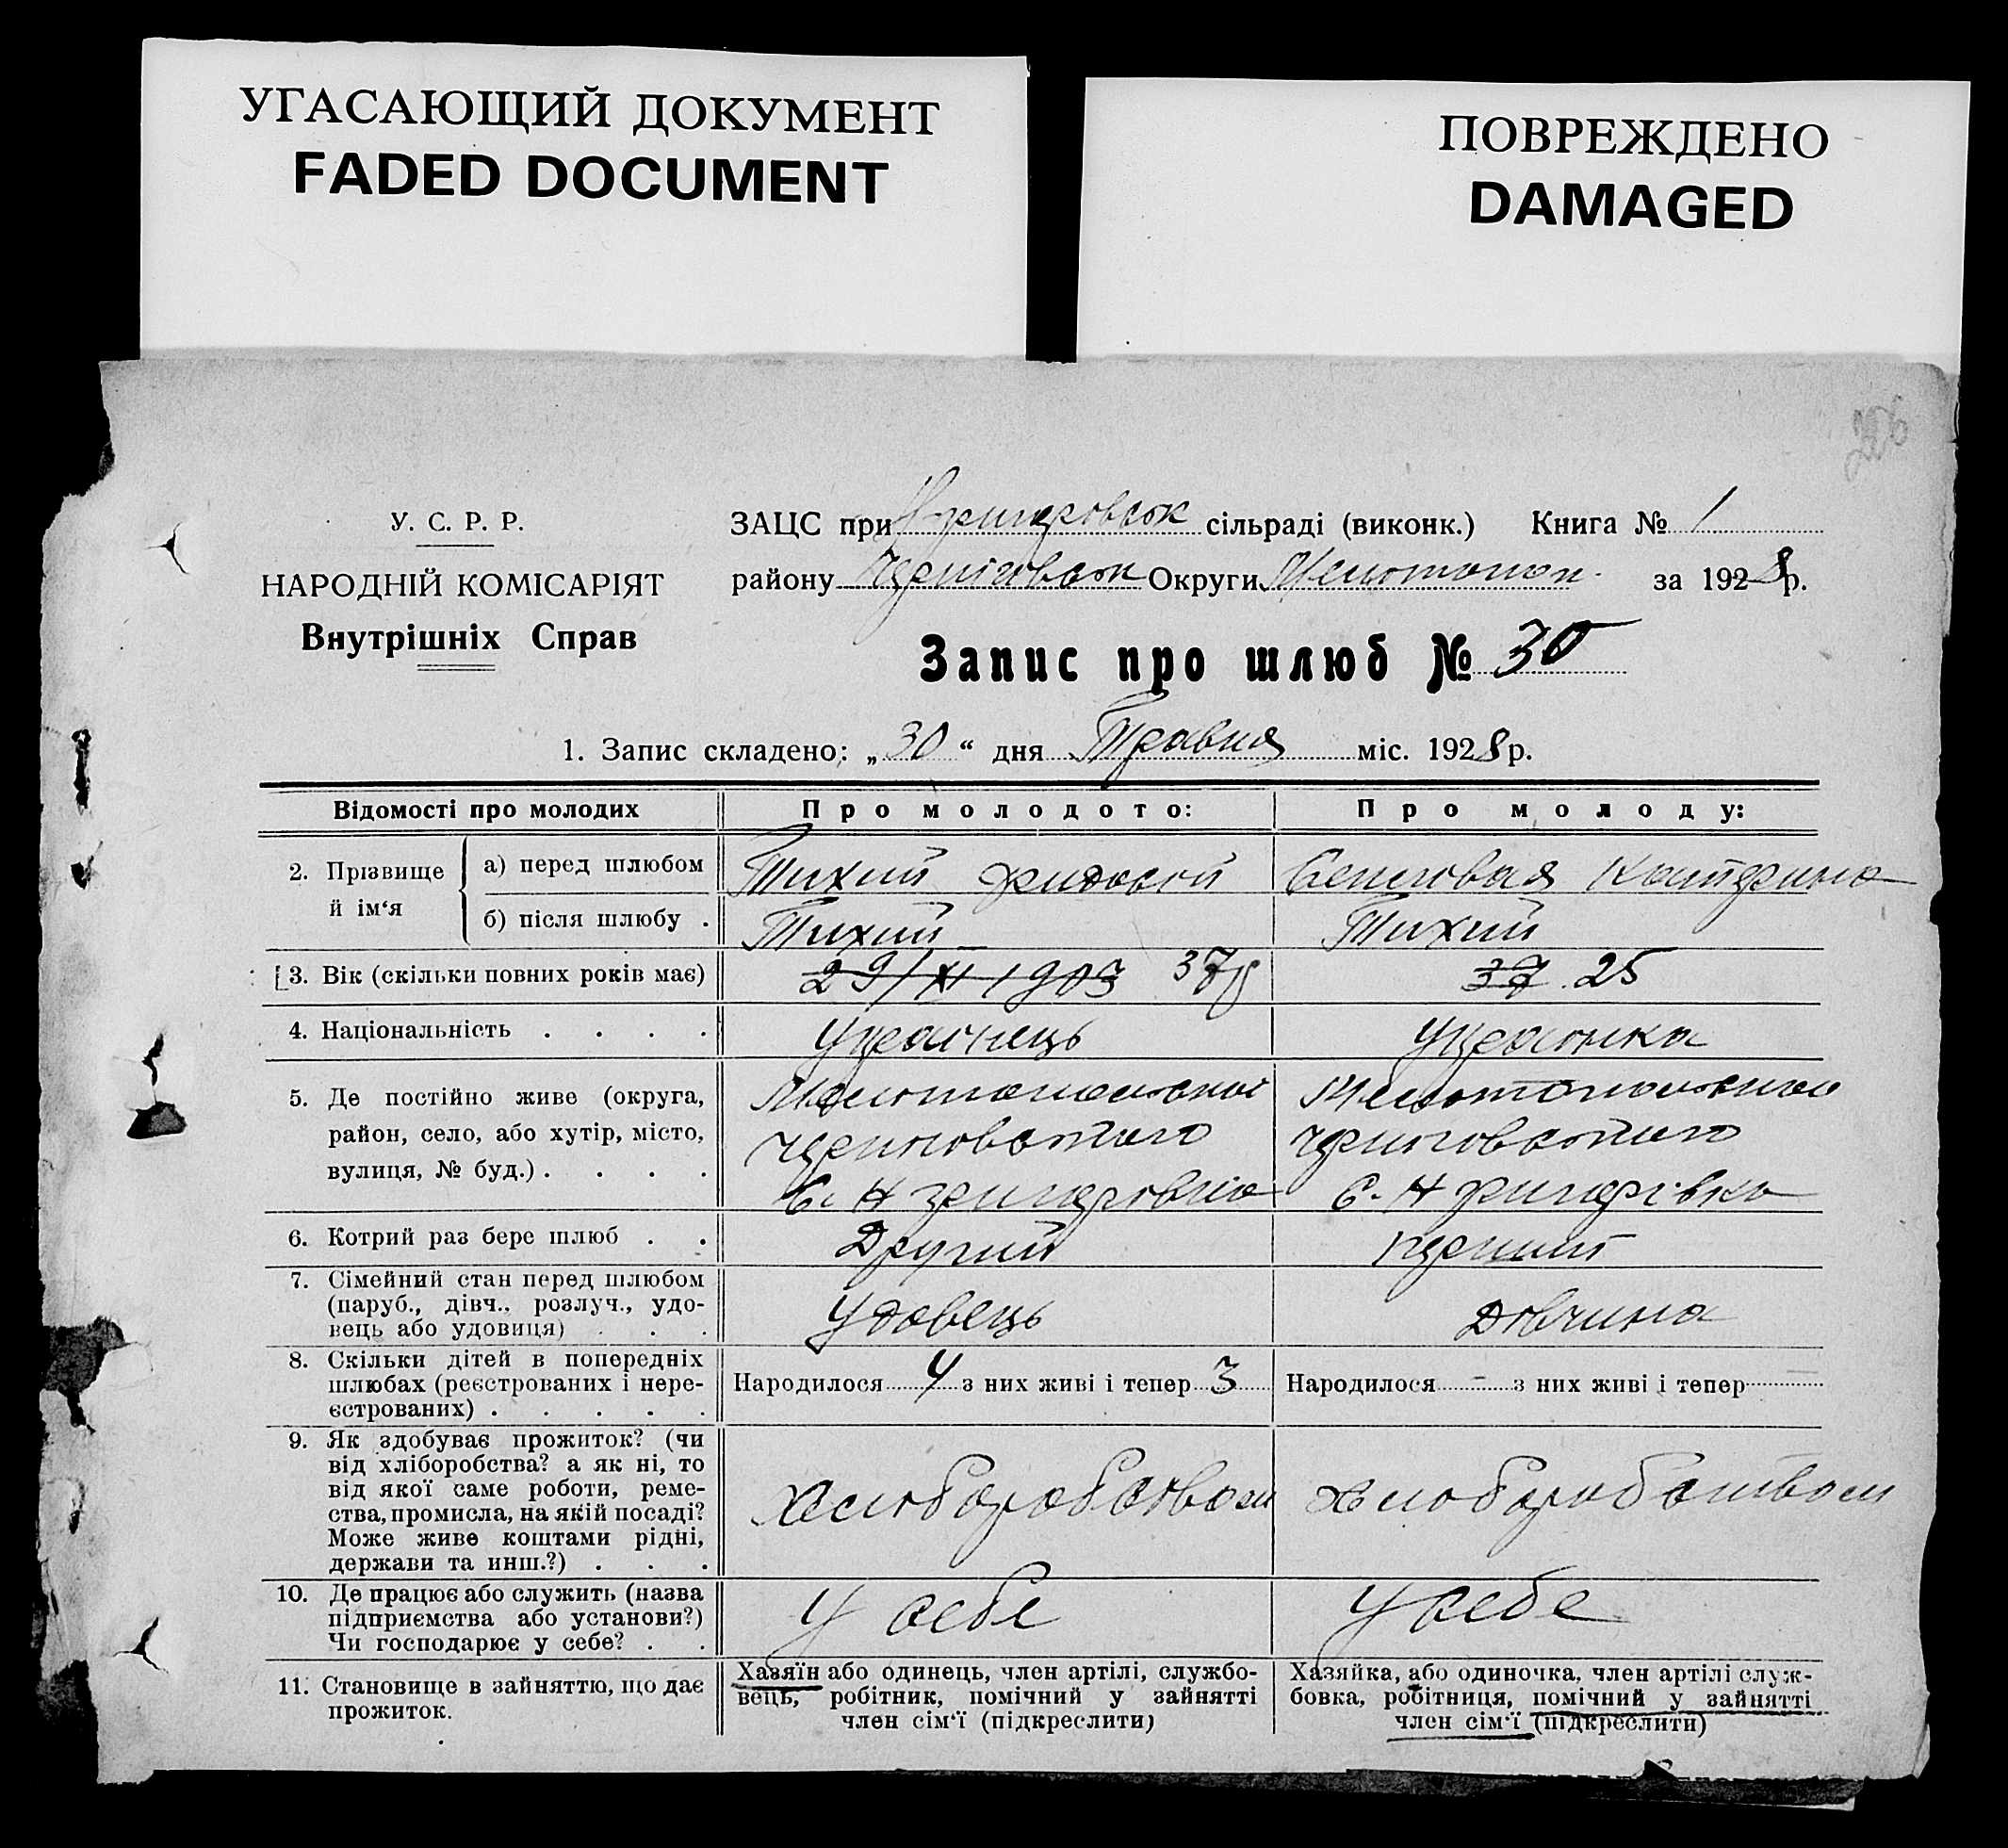 УГАСАЮЩИЙ ДОКУМЕНТ
FADED DOCUMENT
ПОВРЕЖДЕНО
DAMAGED
206
У. С. Р. Р.
НАРОДНІЙ КОМІСАРІЯТ
Внутрішніх Справ
ЗАЦС при сільраді (виконк.) Книга № 1
району Округи за 1928 р.
Запис про шлюб № 30
1. Запис складено: „30“ дня Травня міс. 1928 р.
Відомості про молодих Про молодого: Про молоду:
2. Прізвище й ім‘я
а) перед шлюбом Тихий Катерина
б) після шлюбу . Тихий Тихий
3. Вік (скільки повних років має) 29/XI 1903 37 37 25
4. Національність . . . . Українець Українка
5. Де постійно живе (округа,
район, село, або хутір, місто,
вулиця, № буд.) . . . .
6. Котрий раз бере шлюб . . Другий перший
7. Сімейний стан перед шлюбом
(паруб., дівч., розлуч., удо-
вець або удовиця) . . . Удовець Дівчина
8. Скільки дітей в попередніх
шлюбах (реєстрованих і нере-
єстрованих) . . . . .
Народилося 4 з них живі і тепер 3 Народилося - з них живі і тепер -
9. Як здобуває прожиток? (чи
від хліборобства? а як ні, то
від якої саме роботи, реме-
ства, промисла, на якій посаді?
Може живе коштами рідні,
держави та инш.?) . . .
хліборобством хліборобством
10. Де працює або служить (назва
підприємства або установи?)
Чи господарює у себе? . .
у себе у себе
11. Становище в зайняттю, що дає
прожиток.
Хазяїн або одинець, член артілі, службо-
вець, робітник, помічний у зайнятті
член сім‘ї (підкреслити)
Хазяйка, або одиночка, член артілі служ-
бовка, робітниця, помічний у зайнятті
член сім‘ї (підкреслити)